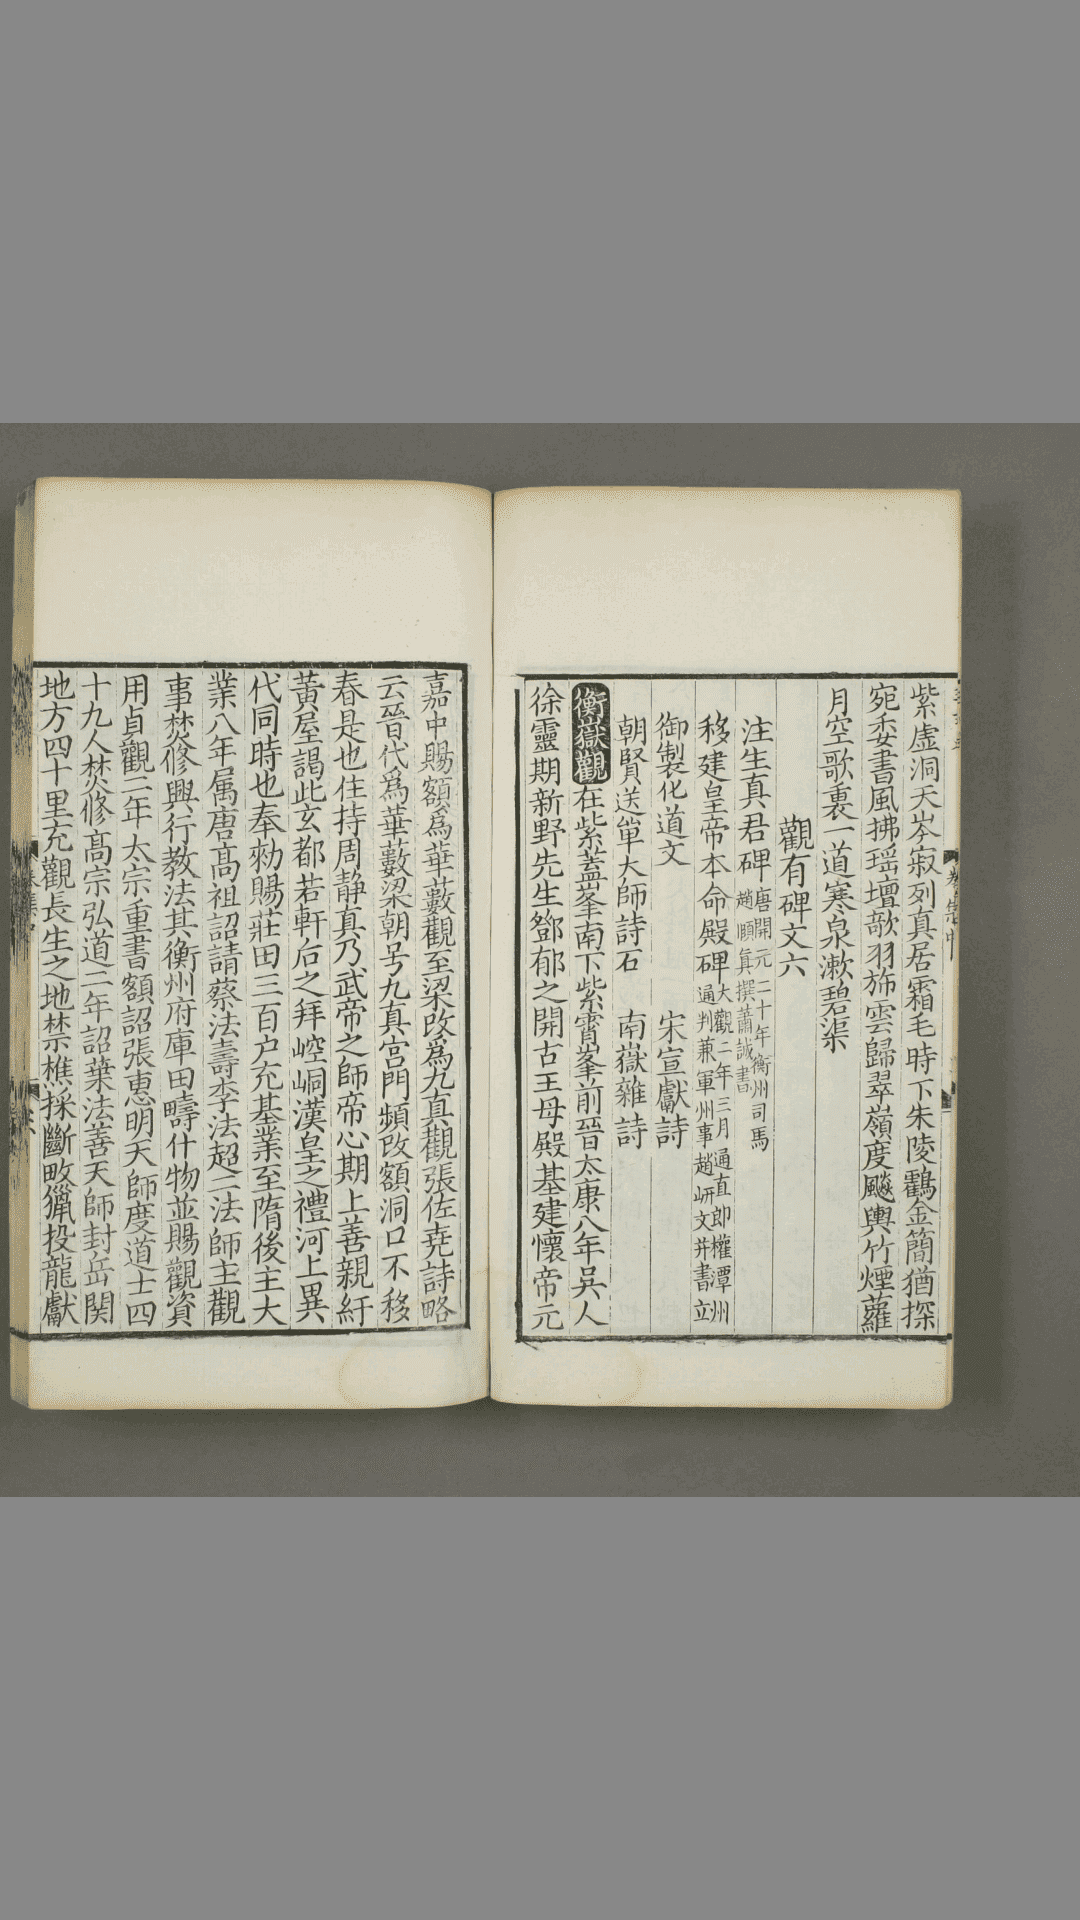 紫虛洞天岑寂列真居霜毛時下朱陵鸖金簡猶探
宛委書風拂瑶壇歌羽斾雲歸翠嶺度飈輿竹煙蘿
月空歌裏一道寒泉漱碧渠
觀有碑文六
注生真君碑唐開元二十年衡州司馬
趙頤真撰蕭誠書
移建皇帝本命殿碑大觀二年三月通直郎權潭州
通判兼軍州事趙岍文并書立
御製化道文 宋宣獻詩
朝賢送單大師詩石 南嶽雜詩
衡嶽觀在紫蓋峯南下紫霄峯前晉太康八年吳人
徐靈期新野先生鄧郁之開古王母殿基建懷帝元
嘉中賜額爲華藪觀至梁改爲九真觀張佐尭詩略
云晉代爲華藪梁朝号九真宫門頻改額洞口不移
春是也住持周静真乃武帝之師帝心期上善親紆
黃屋謁此玄都若軒后之拜崆峒漢皇之禮河上異
代同時也奉勑賜莊田三百户充基業至隋後主大
業八年属唐髙祖詔請蔡法壽李法超二法師主觀
事焚修興行教法其衡州府庫田疇什物並賜觀資
用貞觀二年太宗重書額詔張惠明天師度道士四
十九人焚修髙宗弘道二年詔葉法善天師封岳関
地方四十里充觀長生之地禁樵採斷畋獵投龍獻